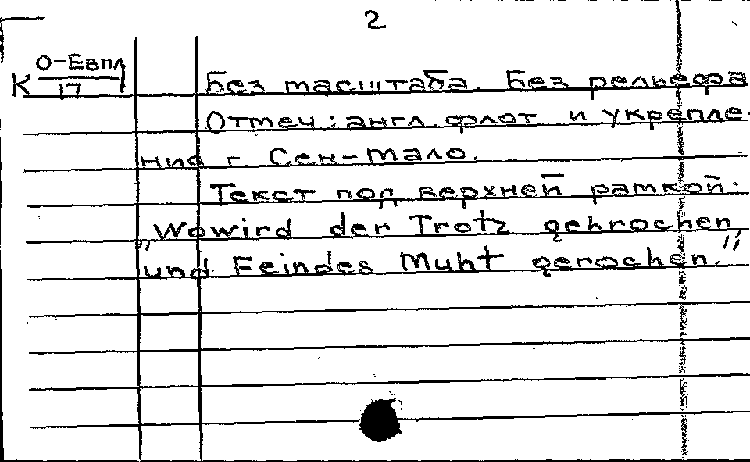 2
К О-Евпл
17
Без масштаба. Без рельефа
Отмеч: англ. флот и укрепле-
ния г. Сен-Мало.
Текст под верхней рамкой:
„Wowird der Trotz gebrochen,
und Feindes Muht gerochen."